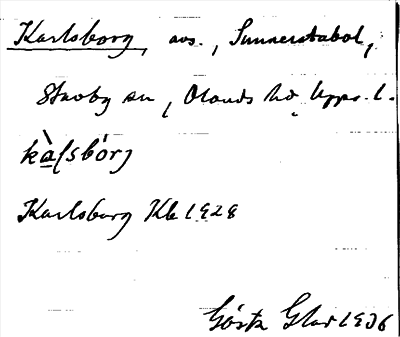 Karlsborg, avs., Sunnerstabol,
Stavby sn, Olands hd, Upps. l.
kàlsbórj
Karlsborg Kb 1928
Gösta Glav 1936